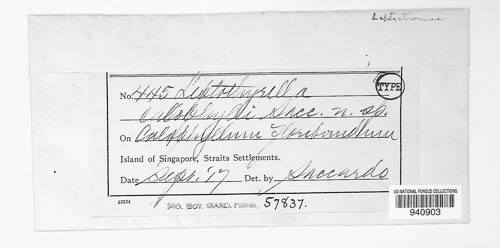 No. 445 Leptothyrella
Calophylli Sacc. n. sp.
TYPE
On Calophyllum floribundum
Island of Singapore, Straits Settlements.
Date Sept. '17 Det. by Saccardo
MO. BOT. GARD. HERB. 57837.
US NATIONAL FUNGUS COLLECTIONS
940903